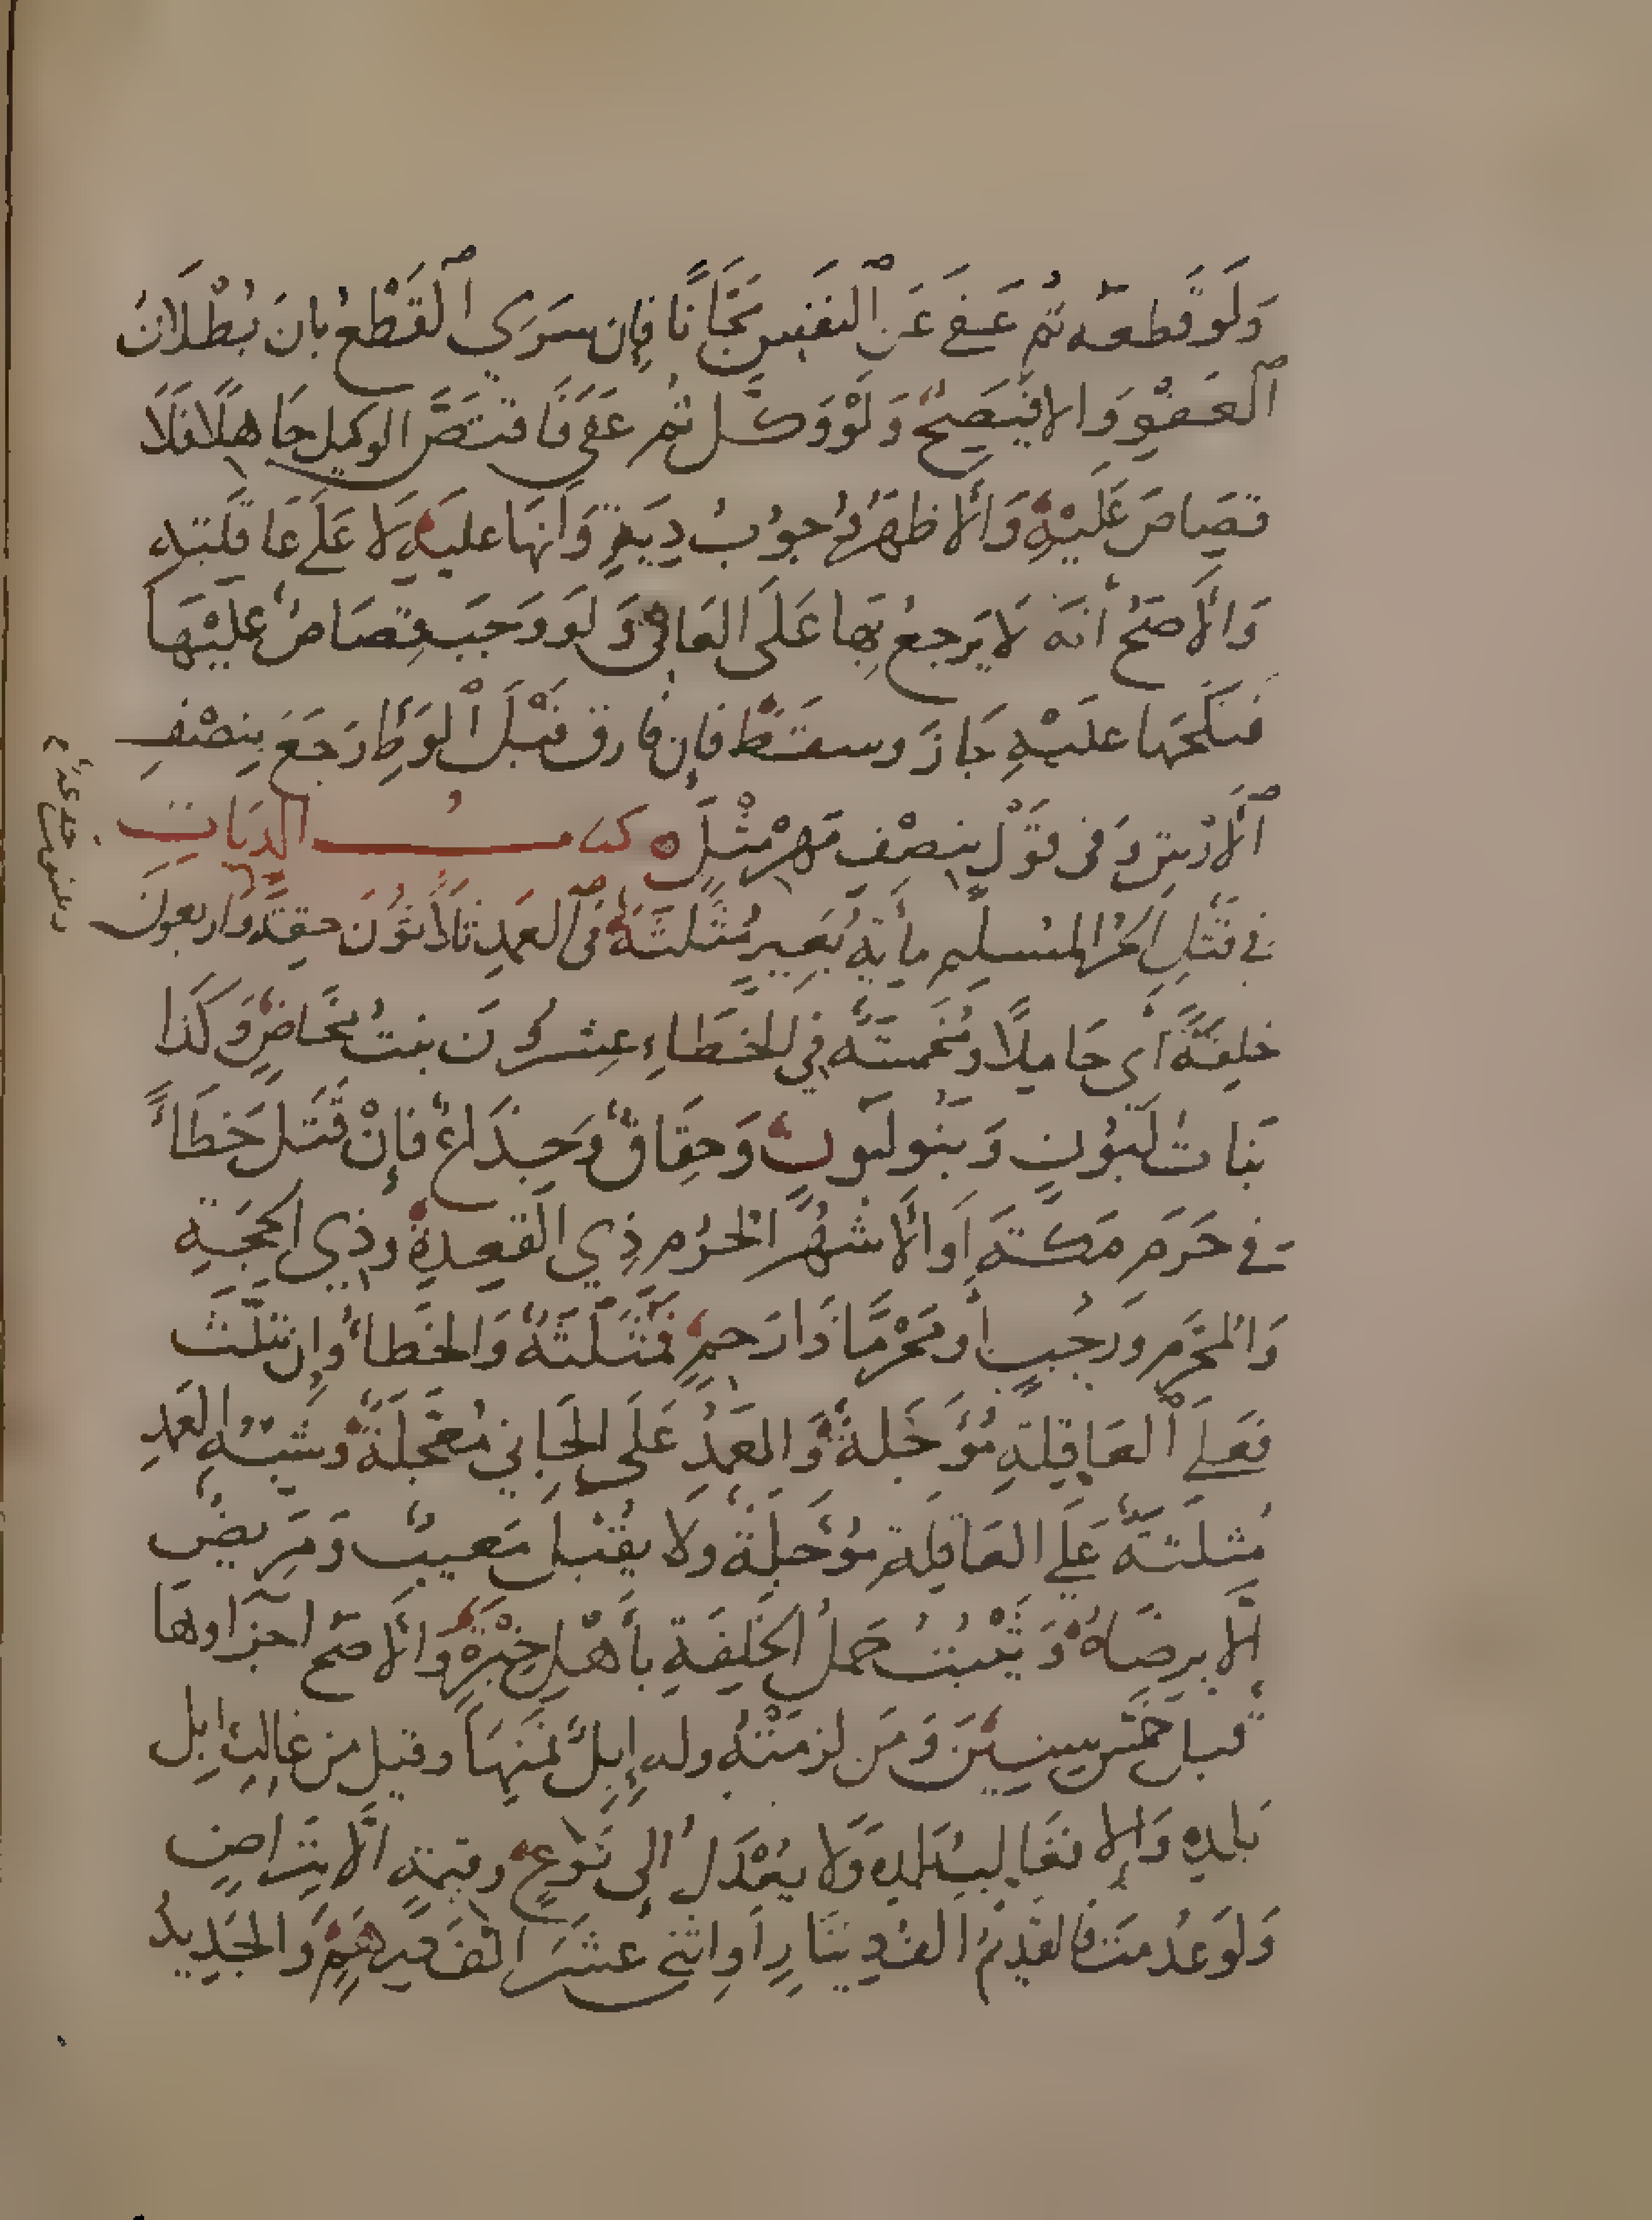 وَلَو قَطعَه ثُم عَفي عَنِ ٱلنفسِ مَجَّانًا فإن سَرَي ٱلقَطْعُ بانَ بُطْلَانُ
ٱلعَفْوِ وَالا فيَصِحُّ وَلَوْ وَكَّل ثُم عَفَى فَاقتَصَّ الوكيل جَاهلًا فَلَا
قصَاصَ عَلَيْهِ وَالأظهَرُ وُجوُبُ دِيَةٍ وَأنهَا عليهِ لَا عَلَى عَاقلَتِه
وَالأَصَحُّ أنَّهُ لَا يَرجعُ بِهَا عَلَى العَافِي وَلَو وَجَبَ قِصَاصٌ عَلَيْهَا
فَنَكَحَهَا عَليْهِ جَازَ وسقَطَ فإن فَارق قَبْلَ ٱلوَطْءِ رَجَعَ بِنِصْفِ
ٱلأرْشِ وَفي قَوْلٍ بِنصْفِ مَهرِ مثْلٍ كتابُ الدِيَاتِ
في قَتْلِ الحُر المُسلِم مأيَةُ بَعِيرٍ مُثَلَّثَةٌ في ٱلعَمدِ ثَلَاثُونَ حقةً وَاربعونَ
خلِفَةً أَى حَامِلًا وَمُخَمسَةٌ في الخَطَاءِ عِشرُونَ بنتُ مَخَاضٍ وَكَذَا
بَناتُ لَبُونٍ وَبَنُو لَبُونٍ وَحِقَاقٌ وَجِذَاعٌ فَإنْ قَتَلَ خَطَاءً
في حَرَمِ مَكَّةَ أَو الأشهُرِ الحُرُمِ ذِي القعدةِ وذِي الحجَةِ
وَالمُحَرَّمِ وَرَجُبٍ أَو مَحْرَمًا ذَا رَحمٍ فَمُثَلَّثَةٌ وَالخَطاءُ وَإن تثلّثَ
فعَلَى ٱلعَاقِلةِ مُؤَجَّلةً وَالعَمدُ عَلَى الجَانِي مُعَجَّلَةً وَشبْهُ العَمدِ
مُثلَثةٌ عَلَى العَاقِلةِ مُؤَجَّلةً وَلا يقْبَلُ مَعِيبٌ وَمَرِيضٌ
ألّا برِضَاهُ وَيَثْبُتُ حَملُ الخَلِفَةِ بأَهْلِ خِبْرَةٍ وَالأَصَح اجزاوهَا
قبل خَمْس سِنِينَ وَمَن لزمَتْهُ وله إبِلٌ فَمِنهَا وقيل من غَالِبِ إِبِلِ
بَلدِهِ وَإلا فغَالِبُ بَلدِهِ وَلَا يعْدَلُ إلى نَوعٍ وقيمَةٍ ألّا بتَرَاضٍ
وَلَو عُدمَت فَالقَدِيمُ الفُ دِينَارٍ أَو اثنَي عَشَرَ الفَ دِرهَمٍ وَالجَدِيدُ